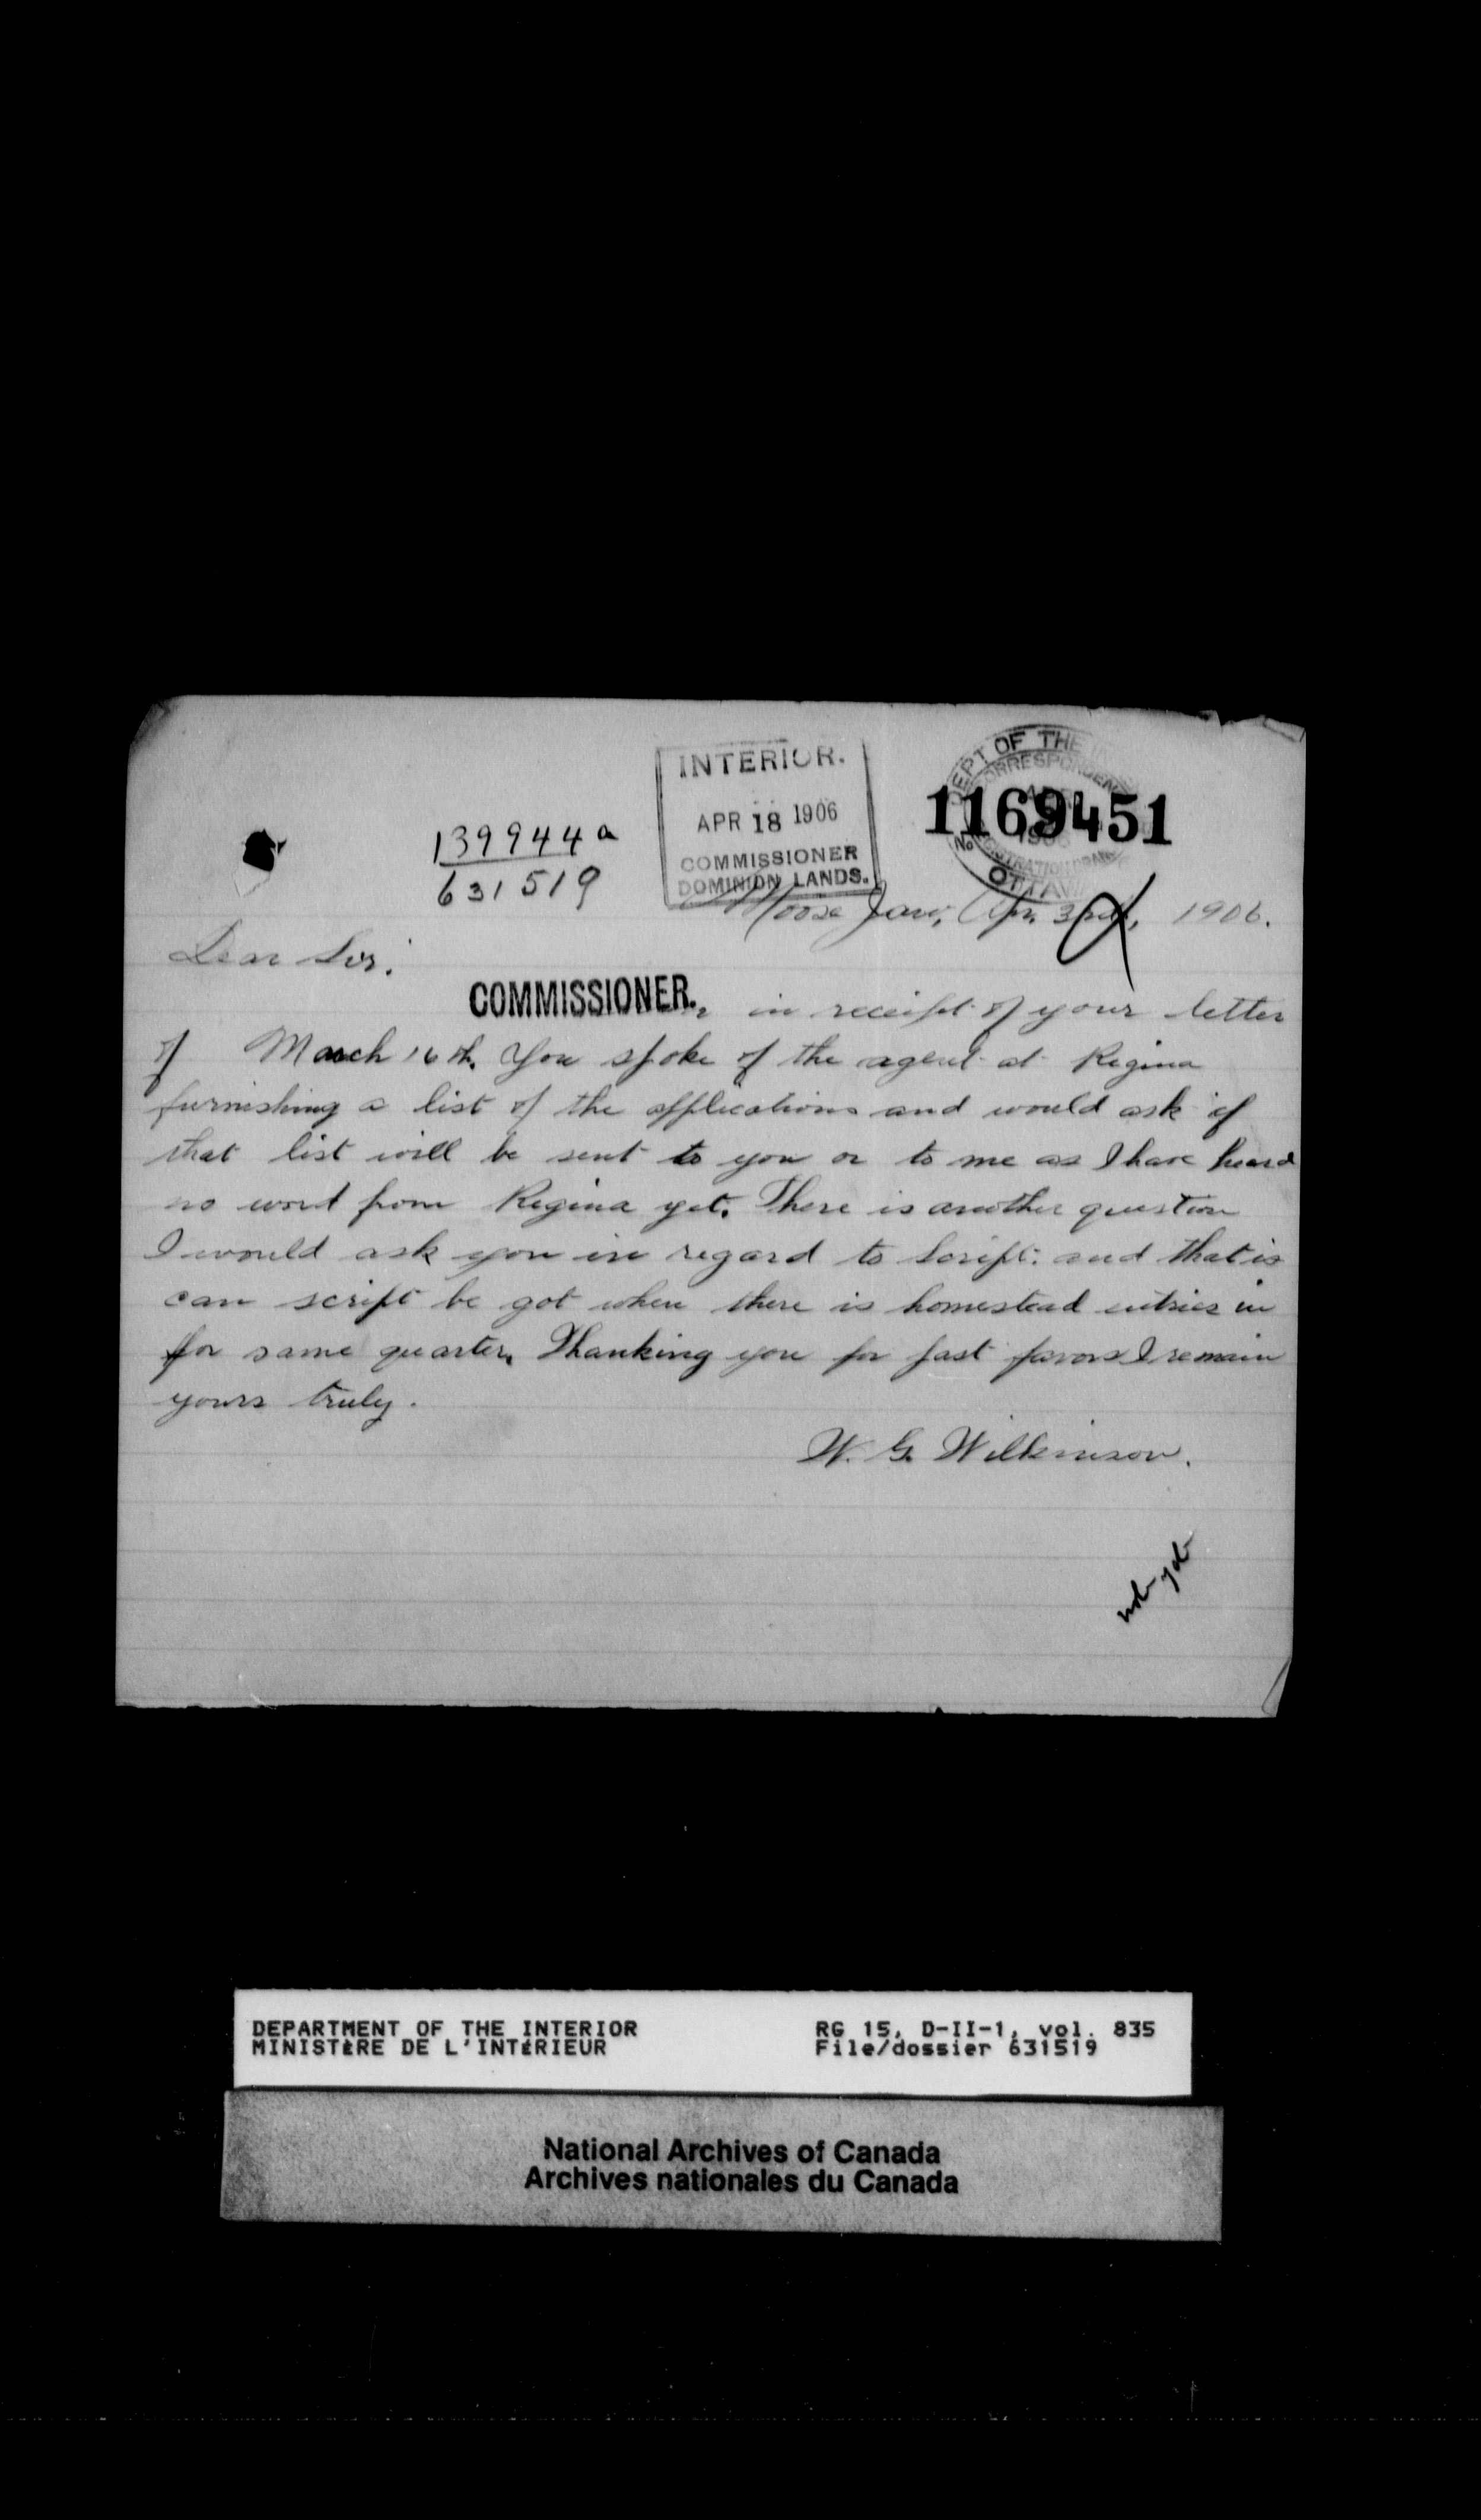 INTERIOR.
APR 18 1906
COMMISSIONER
DOMINION LANDS.
DEPT OF THE
CORRESPONDENCE
1169451
No
1906
OTTAWA
139944a
631519
Moose Jaw, Apr. 3rd, 1906.
Dear Sir:
COMMISSIONER.
in receipt of your letter
of March 16th. You spoke of the agent at Regina
furnishing a list of the applications and would ask if
that list will be sent to you or to me as I have heard
no word from Regina yet. There is another question
I would ask you in regard to Script: and that is
can script be got when there is homestead entries in
for same quarter. Thanking you for past favors I remain
yours truly.
W. G. Wilkinson.
not yet
DEPARTMENT OF THE INTERIOR
MINISTÈRE DE L'INTÉRIEUR
RG 15, D-II-1, vol. 835
File/dossier 631519
National Archives of Canada
Archives nationales du Canada